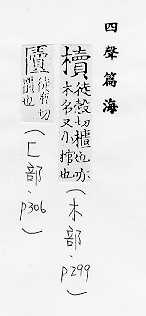 四聲篇海
櫝 徒谷切櫃也亦
木名又小棺也
(木部・p299)
匵 徒谷切
匱也
(匚部・p306)